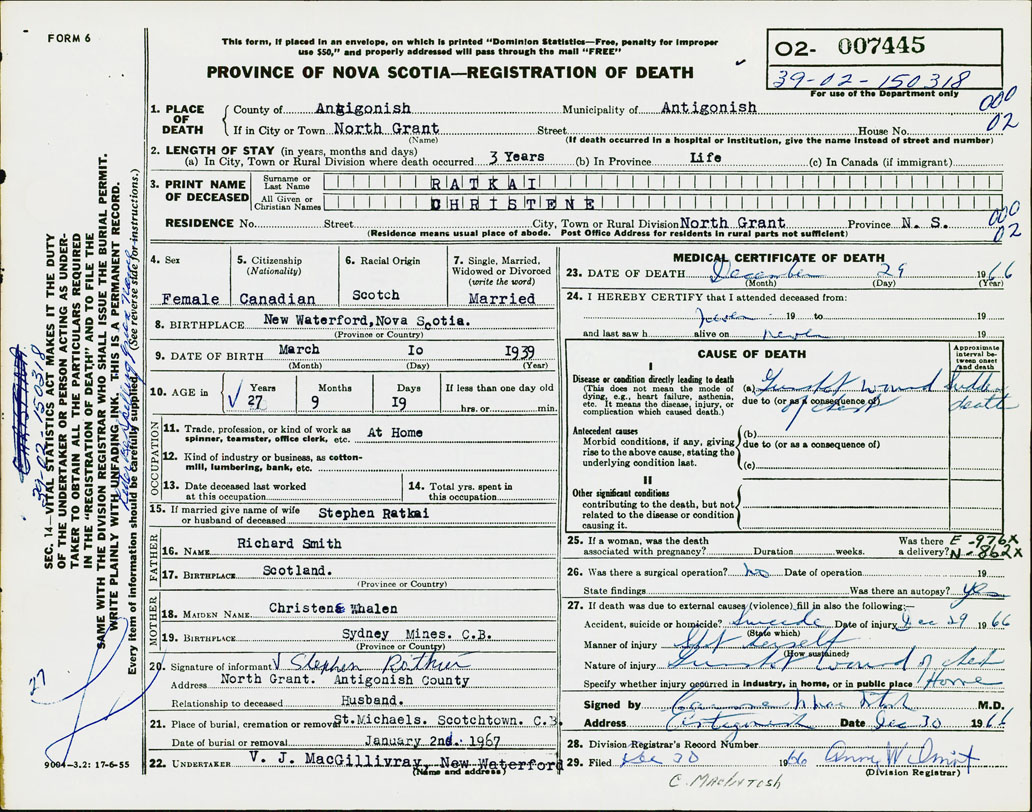 FORM 6
This form, if placed in an envelope, on which is printed "Dominion Statistics—Free, penalty for improper
use $50," and properly addressed will pass through the mail "FREE"
PROVINCE OF NOVA SCOTIA—REGISTRATION OF DEATH
02- 007445
39-02-150318
For use of the Department only
000
02
1. PLACE OF DEATH
County of Antigonish Municipality of Antigonish
If in City or Town North Grant Street House No.
(Name) (If death occurred in a hospital or institution, give the name instead of street and number)
2. LENGTH OF STAY (in years, months and days)
(a) In City, Town or Rural Division where death occurred 3 Years (b) In Province Life (c) In Canada (if immigrant)
3. PRINT NAME OF DECEASED
Surname or Last Name RATKAI
All Given or Christian Names CHRISTENE
RESIDENCE No. Street City, Town or Rural Division North Grant Province N. S.
(Residence means usual place of abode. Post Office Address for residents in rural parts not sufficient)
000
02
4. Sex Female
5. Citizenship (Nationality) Canadian
6. Racial Origin Scotch
7. Single, Married, Widowed or Divorced (write the word) Married
8. BIRTHPLACE New Waterford,Nova Scotia.
(Province or Country)
9. DATE OF BIRTH March Io I939
(Month) (Day) (Year)
10. AGE in Years 27 Months 9 Days I9 If less than one day old hrs. or min.
OCCUPATION
11. Trade, profession, or kind of work as spinner, teamster, office clerk, etc. At Home
12. Kind of industry or business, as cotton-mill, lumbering, bank, etc.
13. Date deceased last worked at this occupation
14. Total yrs. spent in this occupation
15. If married give name of wife or husband of deceased Stephen Ratkai
FATHER
16. NAME Richard Smith
17. BIRTHPLACE Scotland.
(Province or Country)
MOTHER
18. MAIDEN NAME Christene Whalen
19. BIRTHPLACE Sydney Mines. C.B.
(Province or Country)
20. Signature of informant Stephen Ratkai
Address North Grant. Antigonish County
Relationship to deceased Husband.
21. Place of burial, cremation or removal St.Michaels. Scotchtown. C.B.
Date of burial or removal January 2nd. 1967
22. UNDERTAKER V. J. MacGillivray, New Waterford
(Name and address)
MEDICAL CERTIFICATE OF DEATH
23. DATE OF DEATH December 29 1966
(Month) (Day) (Year)
24. I HEREBY CERTIFY that I attended deceased from:
never 19 to 19
and last saw h alive on never 19
CAUSE OF DEATH
Approximate interval between onset and death
I
Disease or condition directly leading to death
(This does not mean the mode of dying, e.g., heart failure, asthenia, etc. It means the disease, injury, or complication which caused death.)
(a) Gunshot wound of chest
due to (or as a consequence of)
Sudden death
Antecedent causes
Morbid conditions, if any, giving rise to the above cause, stating the underlying condition last.
(b)
due to (or as a consequence of)
(c)
II
Other significant conditions
contributing to the death, but not related to the disease or condition causing it.
25. If a woman, was the death associated with pregnancy? Duration weeks. Was there a delivery?
E -976X
N -862X
26. Was there a surgical operation? no Date of operation 19
State findings Was there an autopsy? yes
27. If death was due to external causes (violence) fill in also the following:—
Accident, suicide or homicide? Suicide Date of injury Dec 29 1966
(State which)
Manner of injury Shot herself
(How sustained)
Nature of injury Gunshot wound of chest
Specify whether injury occurred in industry, in home, or in public place Home
Signed by M.D.
Address Antigonish Date Dec 30 1966
28. Division Registrar's Record Number
29. Filed Dec 30 1966
(Division Registrar)
C. MACINTOSH
SEC. 14—VITAL STATISTICS ACT MAKES IT THE DUTY
OF THE UNDERTAKER OR PERSON ACTING AS UNDER-
TAKER TO OBTAIN ALL THE PARTICULARS REQUIRED
IN THE "REGISTRATION OF DEATH" AND TO FILE THE
SAME WITH THE DIVISION REGISTRAR WHO SHALL ISSUE THE BURIAL PERMIT.
WRITE PLAINLY WITH UNFADING INK, THIS IS A PERMANENT RECORD.
Every item of information should be carefully supplied. (See reverse side for instructions.)
39-02-150318
27
9004—3.2: 17-6-55